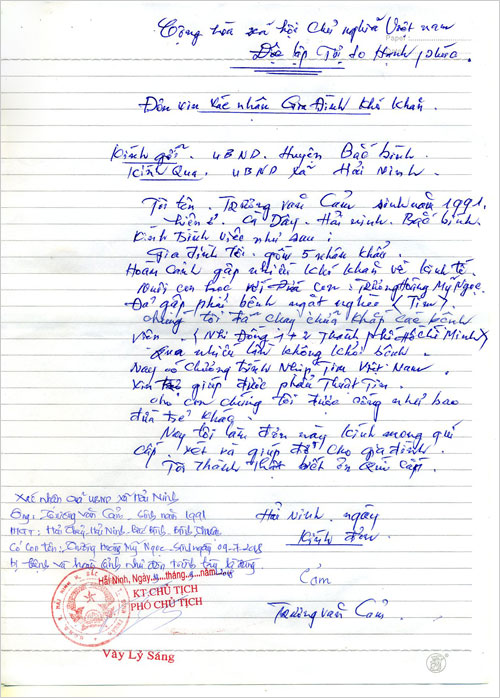 Cộng hòa xã hội Chủ nghĩa Việt nam
Độc lập Tự do Hạnh phúc.
Đơn xin xác nhân Gia Đình khó khăn.
Kính gởi. UBND. Huyện Bắc bình.
Kính Qua. UBND xã Hải Ninh.
Tôi tên. Trương văn Cảm sinh năm 1991.
hiện ở. Cà Dây. Hải ninh. Bắc bình.
Kính trình việc như sau:
Gia đình tôi. gồm 5 nhân khẩu.
Hoàn Cảnh gặp nhiều khó khăn về kinh tế.
Nuôi con học Vì Đứa con: Trương Hoàng Mỹ Ngọc.
Đã gặp phải bệnh ngặt nghèo (Tim).
chúng tôi đã chạy chữa khắp các bệnh
viện. (Nhi Đồng 1+2 Thành phố Hồ Chí Minh)
Qua nhiều lần không khỏi bệnh.
Nay có Chương trình Nhịp Tim Việt Nam.
Xin giúp được phẩu Thuật Tim.
cho con chúng tôi được sống như bao
đứa trẻ khác.
Nay tôi làm đơn này kính mong quí
Cấp. xét và giúp đỡ cho gia đình.
Tôi Thành thật biết ơn Quí Cấp.
Xác nhân của UBND xã Hải Ninh
Ông: Trương văn Cảm. Sinh năm 1991
HKTT: Hải Ninh - Bắc Bình, Bình Thuận
Có con tên: Trương Hoàng Mỹ Ngọc - Sinh ngày 09-7-2018
Bị bệnh và hoàn cảnh như đơn trình bày là đúng
Hải Ninh, Ngày tháng năm 2018
KT.CHỦ TỊCH
PHÓ CHỦ TỊCH
Vày Lý Sáng
Hải Ninh. ngày
Kính đơn
Cảm
Trương văn Cảm.